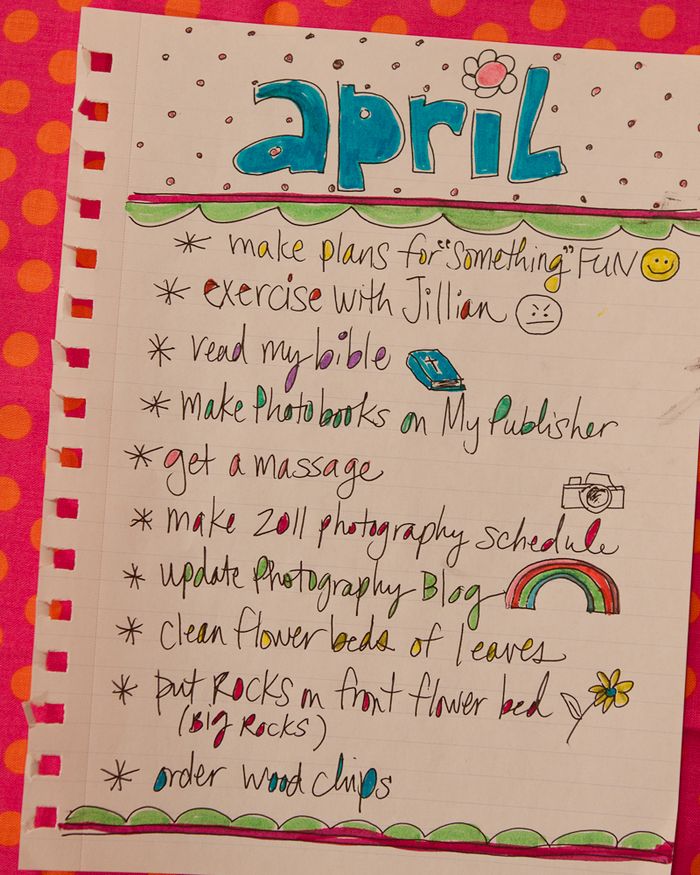 april
* make plans for "something" FUN
* exercise with Jillian
* read my bible
* make Photobooks on My Publisher
* get a massage
* make 2011 photography schedule
* update Photography Blog
* clean flower beds of leaves
* put ROCKS in front flower bed
(BIg ROCKS)
* order wood chips